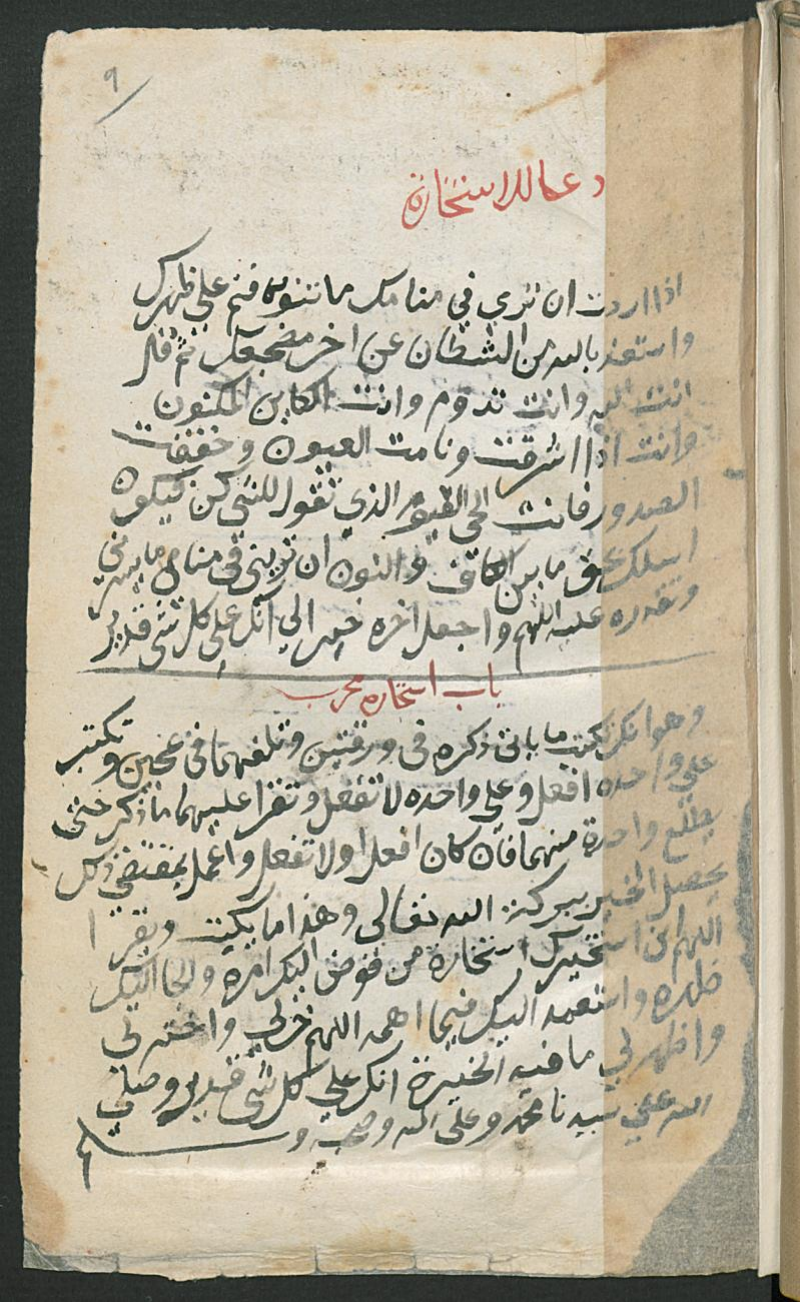 ٩
دعا للاستخارة
اذا اردت ان ترى في منامك ما تنويه فنم على ظهرك
واستعذ بالله من الشيطان عن اخر مضجعك ثم قل
انت الله وانت تدوم وانت الكاين المكنون
وانت اذا اشرقت ونامت العيون وخفقت
الصدور فانت الحي القيوم الذي تقول للشي كن فيكون
اسلك بحق ما بين الكاف والنون ان تريني في منامي ما يسرني
وتقدره عليه اللهم واجعل اخره خير الي انك على كل شي قدير
باب استخاره مجرب
وهو انك تكتب ما ياتي ذكره في ورقتين وتلفهما في عجين وتكتب
على واحده افعل وعلى واحده لا تفعل وتقرا عليهما ما ذكر حتى
يطلع واحدة منهما فان كان افعل اولا تفعل واعمل بمقتضى ذلك
يحصل الخير ببركة الله تعالى وهذا ما يكتب ويقرا
اللهم اني استخيرك استخارة من فوض اليك امره والجا اليك
ظهره واستعمد اليك فيما اهمه اللهم خر لي واختر لي
واظهر لي ما فيه الخيرة انك على كل شي قدير وصلى
الله على سيدنا محمد وعلى اله وصحبه وسلم